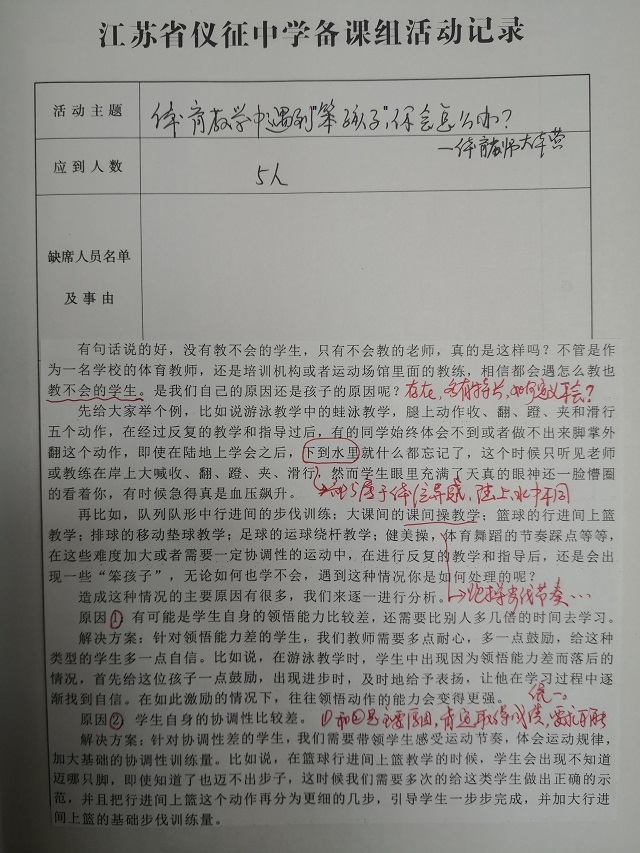 江苏省仪征中学备课组活动记录
活动主题
体育教学中遇到"笨孩子",你会怎么办?
—体育教师大本营
应到人数
5人
缺席人员名单
及事由
有句话说的好，没有教不会的学生，只有不会教的老师，真的是这样吗？不管是作
为一名学校的体育教师，还是培训机构或者运动场馆里面的教练，相信都会遇怎么教也
教不会的学生。是我们自己的原因还是孩子的原因呢？
存在，各有特长，如何定义不会？
先给大家举个例，比如说游泳教学中的蛙泳教学，腿上动作收、翻、蹬、夹和滑行
五个动作，在经过反复的教学和指导过后，有的同学始终体会不到或者做不出来脚掌外
翻这个动作，即使在陆地上学会之后，下到水里就什么都忘记了，这个时候只听见老师
或教练在岸上大喊收、翻、蹬、夹、滑行，然而学生眼里充满了天真的眼神还一脸懵圈
的看着你，有时候急得真是血压飙升。
属于体位异感，陆上，水中不同
再比如，队列队形中行进间的步伐训练；大课间的课间操教学；篮球的行进间上篮
教学；排球的移动垫球教学；足球的运球绕杆教学；健美操，体育舞蹈的节奏踩点等等，
在这些难度加大或者需要一定协调性的运动中，在进行反复的教学和指导后，还是会出
现一些“笨孩子”，无论如何也学不会，遇到这种情况你是如何处理的呢？
造成这种情况的主要原因有很多，我们来逐一进行分析。
节奏…
原因① 有可能是学生自身的领悟能力比较差，还需要比别人多几倍的时间去学习。
解决方案：针对领悟能力差的学生，我们教师需要多点耐心，多一点鼓励，给这种
类型的学生多一点自信。比如说，在游泳教学时，学生中出现因为领悟能力差而落后的
情况，首先给这位孩子一点鼓励，出现进步时，及时地给予表扬，让他在学习过程中逐
渐找到自信。在如此激励的情况下，往往领悟动作的能力会变得更强。
统一。
原因② 学生自身的协调性比较差。
①和②是主要原因，
解决方案：针对协调性差的学生，我们需要带领学生感受运动节奏，体会运动规律，
加大基础的协调性训练量。比如说，在篮球行进间上篮教学的时候，学生会出现不知道
迈哪只脚，即使知道了也迈不出步子，这时候我们需要多次的给这类学生做出正确的示
范，并且把行进间上篮这个动作再分为更细的几步，引导学生一步步完成，并加大行进
间上篮的基础步伐训练量。